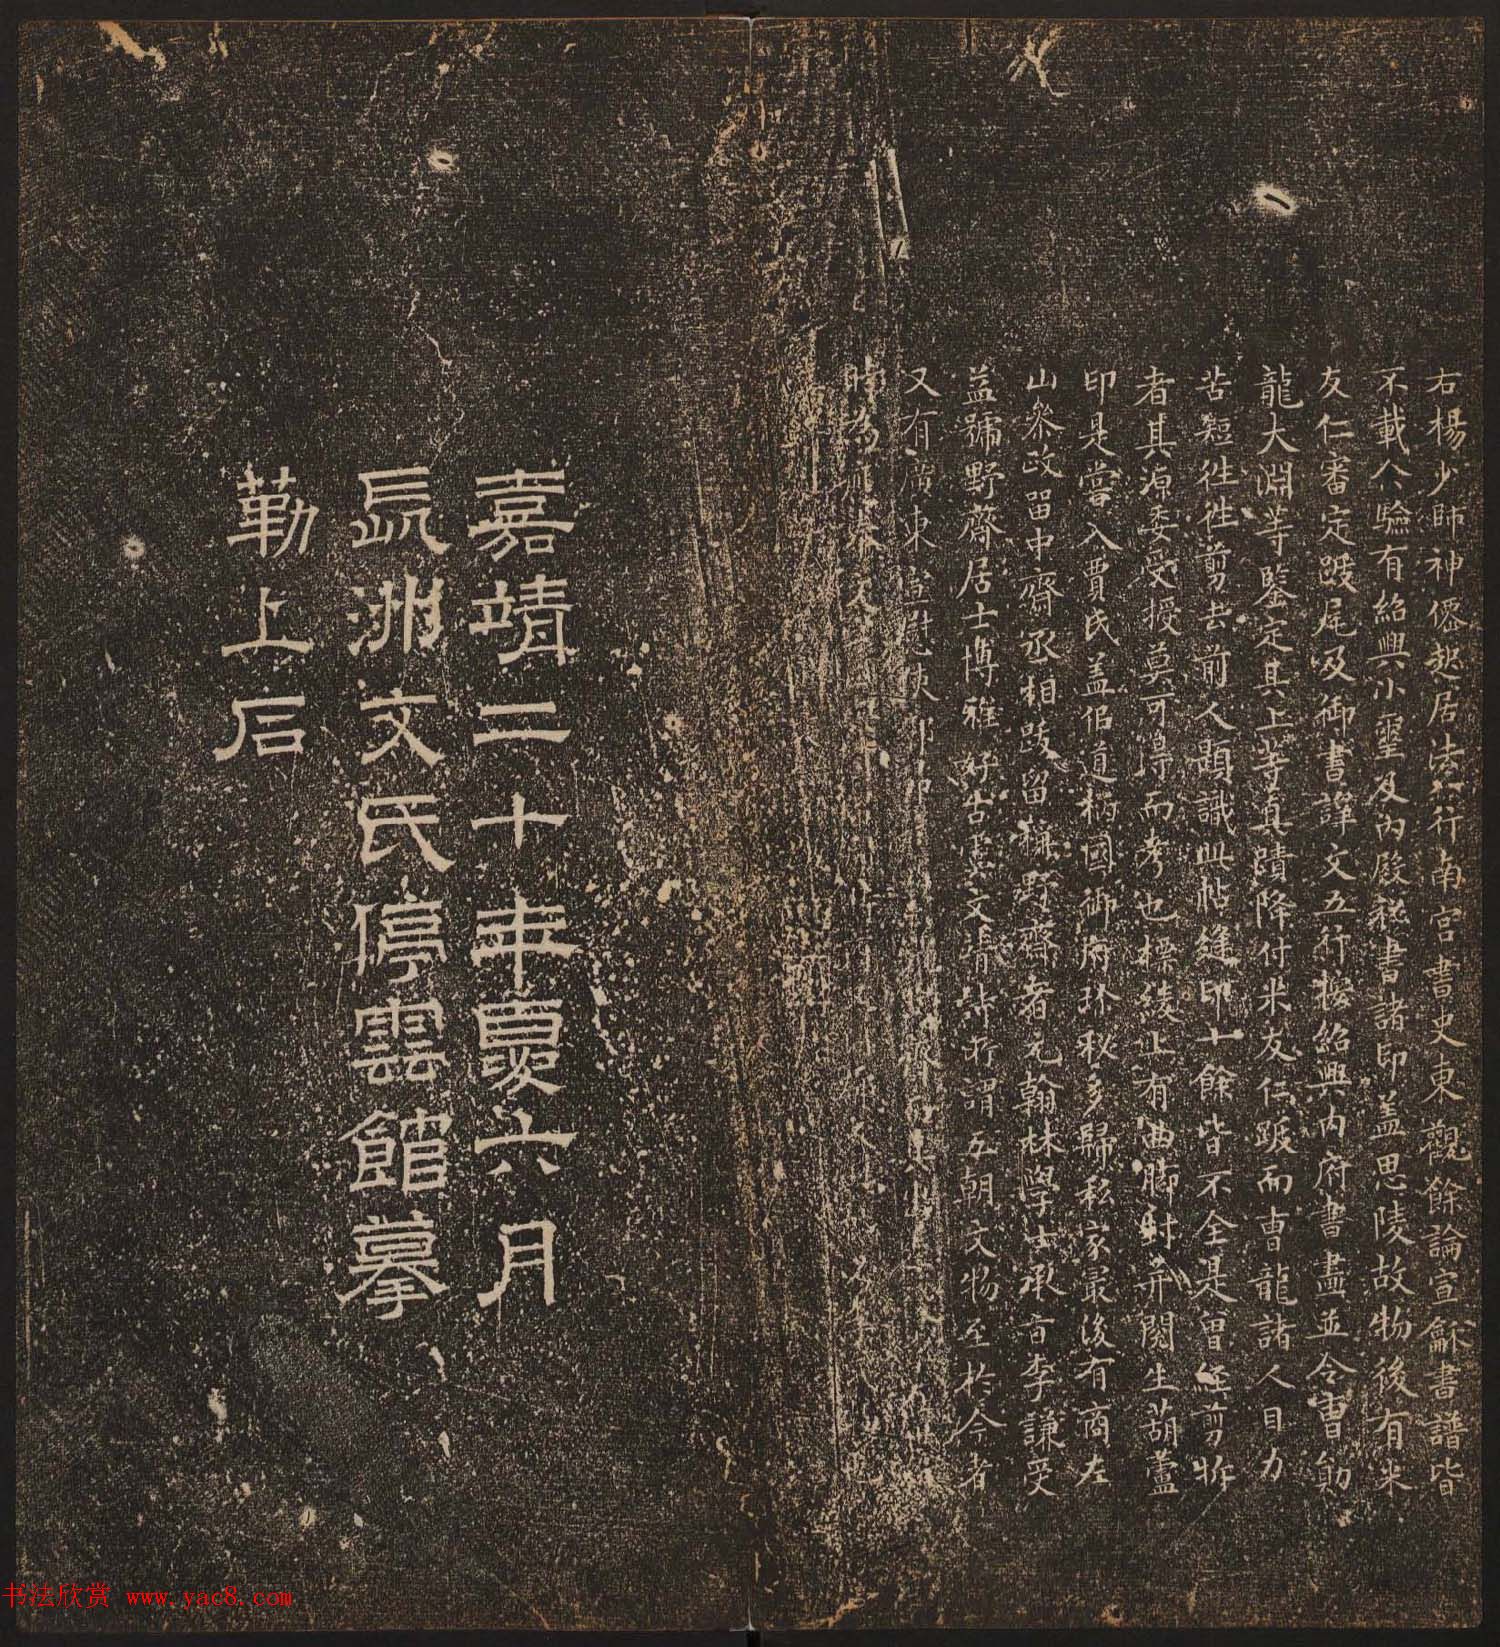 右楊少師神僊起居法八行南宮書史東觀餘論宣龢書譜皆
不載今驗有紹興小璽及內殿秘書諸印蓋思陵故物後有米
友仁審定跋尾及御書譯文五行按紹興內府書畫並令曹勛
龍大淵等鑒定其上等真蹟降付米友仁跋而曹龍諸人目力
苦短往往剪去前人題識此帖縫印十餘皆不全是曾經剪拆
者其源委受授莫可得而考也標綾上有曲脚封并閱生葫蘆
印是嘗入賈氏蓋佀道柄國御府珍秘多歸私家最後有商左
山參政留中齋丞相跋留稱野齋者元翰林學士承旨李謙受
益號野齋居士博雅好古虞文靖所謂五朝文物至於今者
又有廣東
時為
嘉靖二十年夏六月
長洲文氏停雲館摹
勒上石
书法欣赏 www.yac8.com